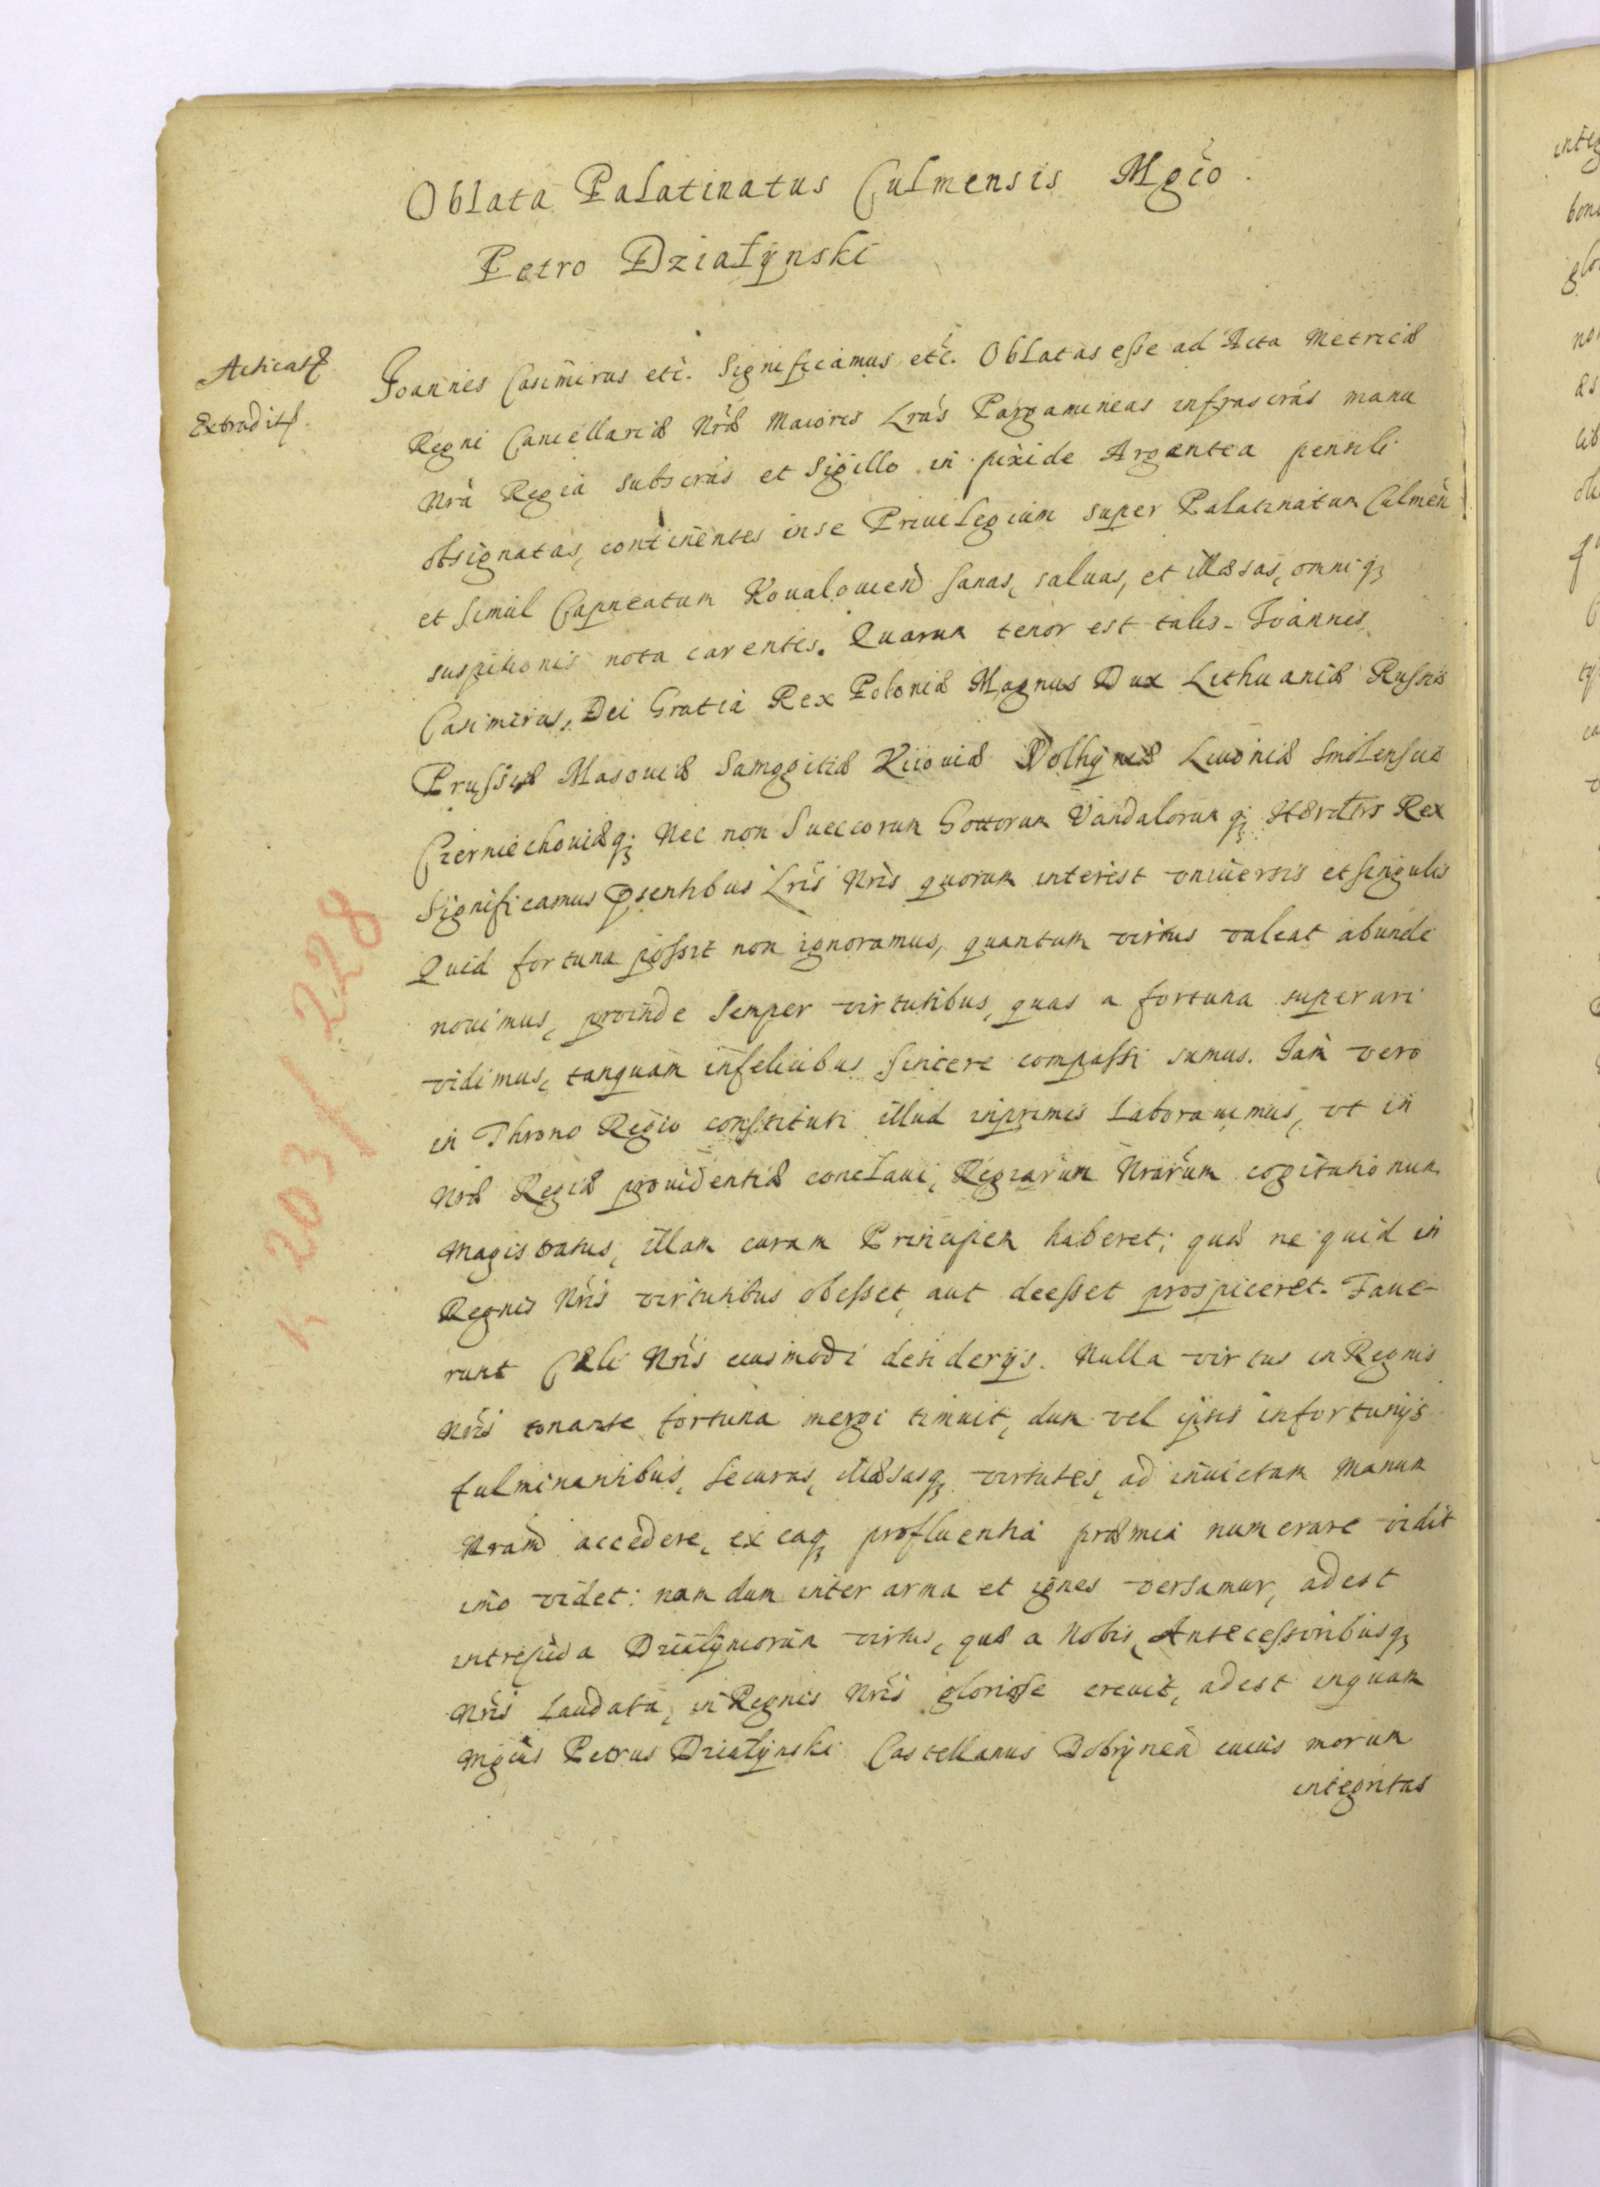 Oblata Palatinatus Culmensis Mgco.
Petro Działÿnski
Acticat
Extradit
Joannes Casimirus etc. Significamus etc. Oblatas esse ad Acta Metricæ
Regni Cancellariæ Nræ Maioris Lras Pargamineas infrascras manu
Nra Regia subscras et Sigillo in pixide Argentea pensili
obsignatas, continentes inse Priuilegium super Palatinatum Culmen
et simul Capneatum Koualouien sanas, saluas, et illæsas, omniq;
suspitionis nota carentes. Quarum tenor est talis. Joannes
Casimirus, Dei Gratia Rex Poloniæ Magnus Dux Lithuaniæ Russiæ
Prussiæ Masouiæ Samogitiæ Kiiouiæ Volhÿniæ Liuoniæ Smolensciæ
Czerniechouiæq; Nec non Sueccorum Gottorum Vandalorum q; Hærdtrs Rex
Significamus Psentibus Lris Nris quorum interest vniuersis et singulis
Quid fortuna possit non ignoramus, quantum virtus valeat abunde
nouimus, proinde Semper virtutibus, quas a fortuna superari
vidimus, tanquam infelicibus Sincere compassi sumus. Jam vero
in Throno Regio constituti illud inprimis Laborauimus, vt in
Nræ Regiæ prouidentiæ conclaui, Regiarum Nrarum cogitationum
magistratus, illam curam Principem haberet; quæ ne quid in
Regnis Nris virtutibus obesset, aut deesset prospiceret. Faue-
runt Cæli Nris eiusmodi desiderÿs. Nulla virtus in Regnis
Nris tonante fortuna mergi timuit, dum vel ipsis infortunÿs
fulminantibus, securas, illæsasq; virtutes, ad inuictam manum
Nram accedere, ex eaq; profluentia præmia numerare vidit
imo videt: nam dum inter arma et ignes versamur, adest
intrepida Działÿniorum virtus, quæ a Nobis, Antecessoribusq;
Nris Laudata, in Regnis Nris gloriose creuit, adest inquam
Mgcus Petrus Działÿnski Castellanus Dobrÿnen cuius morum
integritas
K 203/228